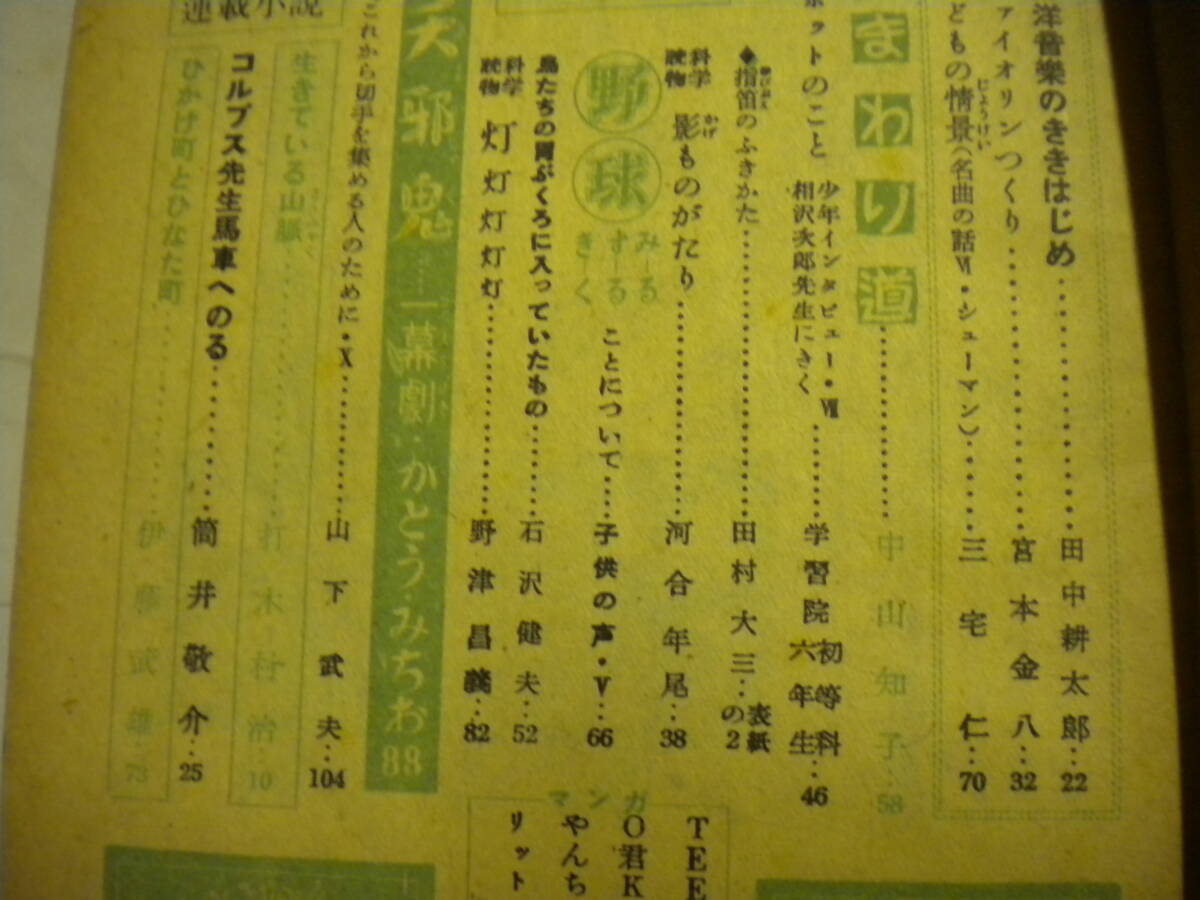 洋音樂のききはじめ……田中耕太郎…22
ァイオリンつくり……宮本金八…32
どもの情景（名曲の話Ⅵ・シューマン）……三宅仁…70
じょうけい
まわり道……中山知子…58
ホットのこと 少年インタビュー・Ⅶ 相沢次郎先生にきく……学習院初等科六年生…46
◆指笛のふきかた……田村大三…表紙の2
科学読物 影ものがたり……河合年尾…38
かげ
野球 みる する きく ことについて……子供の声・Ⅴ…66
鳥たちの胃ぶくろに入っていたもの……石沢健夫…52
科学読物 灯灯灯灯灯……野津昌義…82
天邪鬼……一幕劇…かとう・みちお88
これから切手を集める人のために・Ⅹ……山下武夫…104
連載小説
生きている山脈……打木村治…10
さんみゃく
コルプス先生馬車へのる……筒井敬介…25
ひかげ町とひなた町……伊藤武雄…73
マンガ
TEE
O君K
やんち
リット